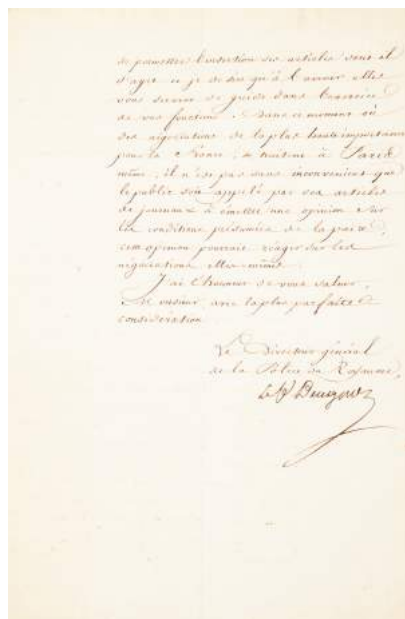 de permettre l'insertion des articles dont il
s'agit et je désire qu'à l'avenir elles
vous servent de guide dans l'exercice
de vos fonctions. Dans ce moment où
des négociations de la plus haute importance
pour la France, se traitent à Paris
même, il n'est pas sans inconvénient que
le public soit appelé par des articles
de journaux à émettre une opinion sur
les conditions présumées de la paix,
cette opinion pourrait réagir sur les
négociations elles-mêmes.
J'ai l'honneur de vous saluer,
Monsieur, avec la plus parfaite
considération.
Le Directeur général
de la Police du Royaume,
Beugnot